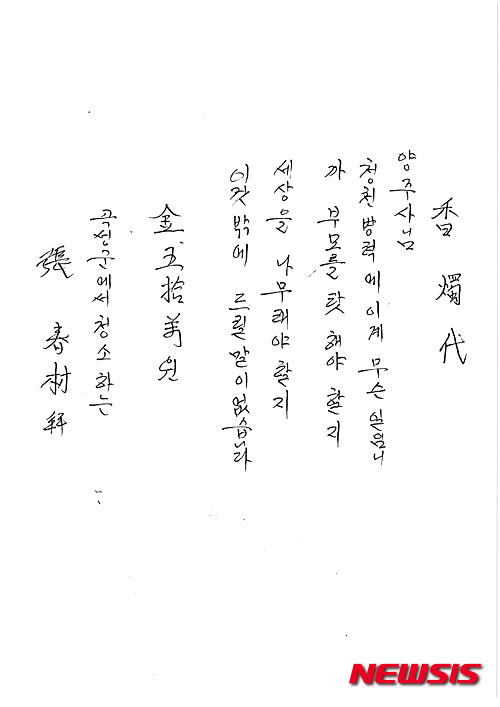 香燭代
양주사님
청천병력에 이게 무슨 일임니
까 부모를 탓 해야 할지
세상을 나무래야 할지
이것 밖에 드릴 말이 없습니다
金五拾萬원
곡성군에서 청소하는
張春村 拜
NEWSIS